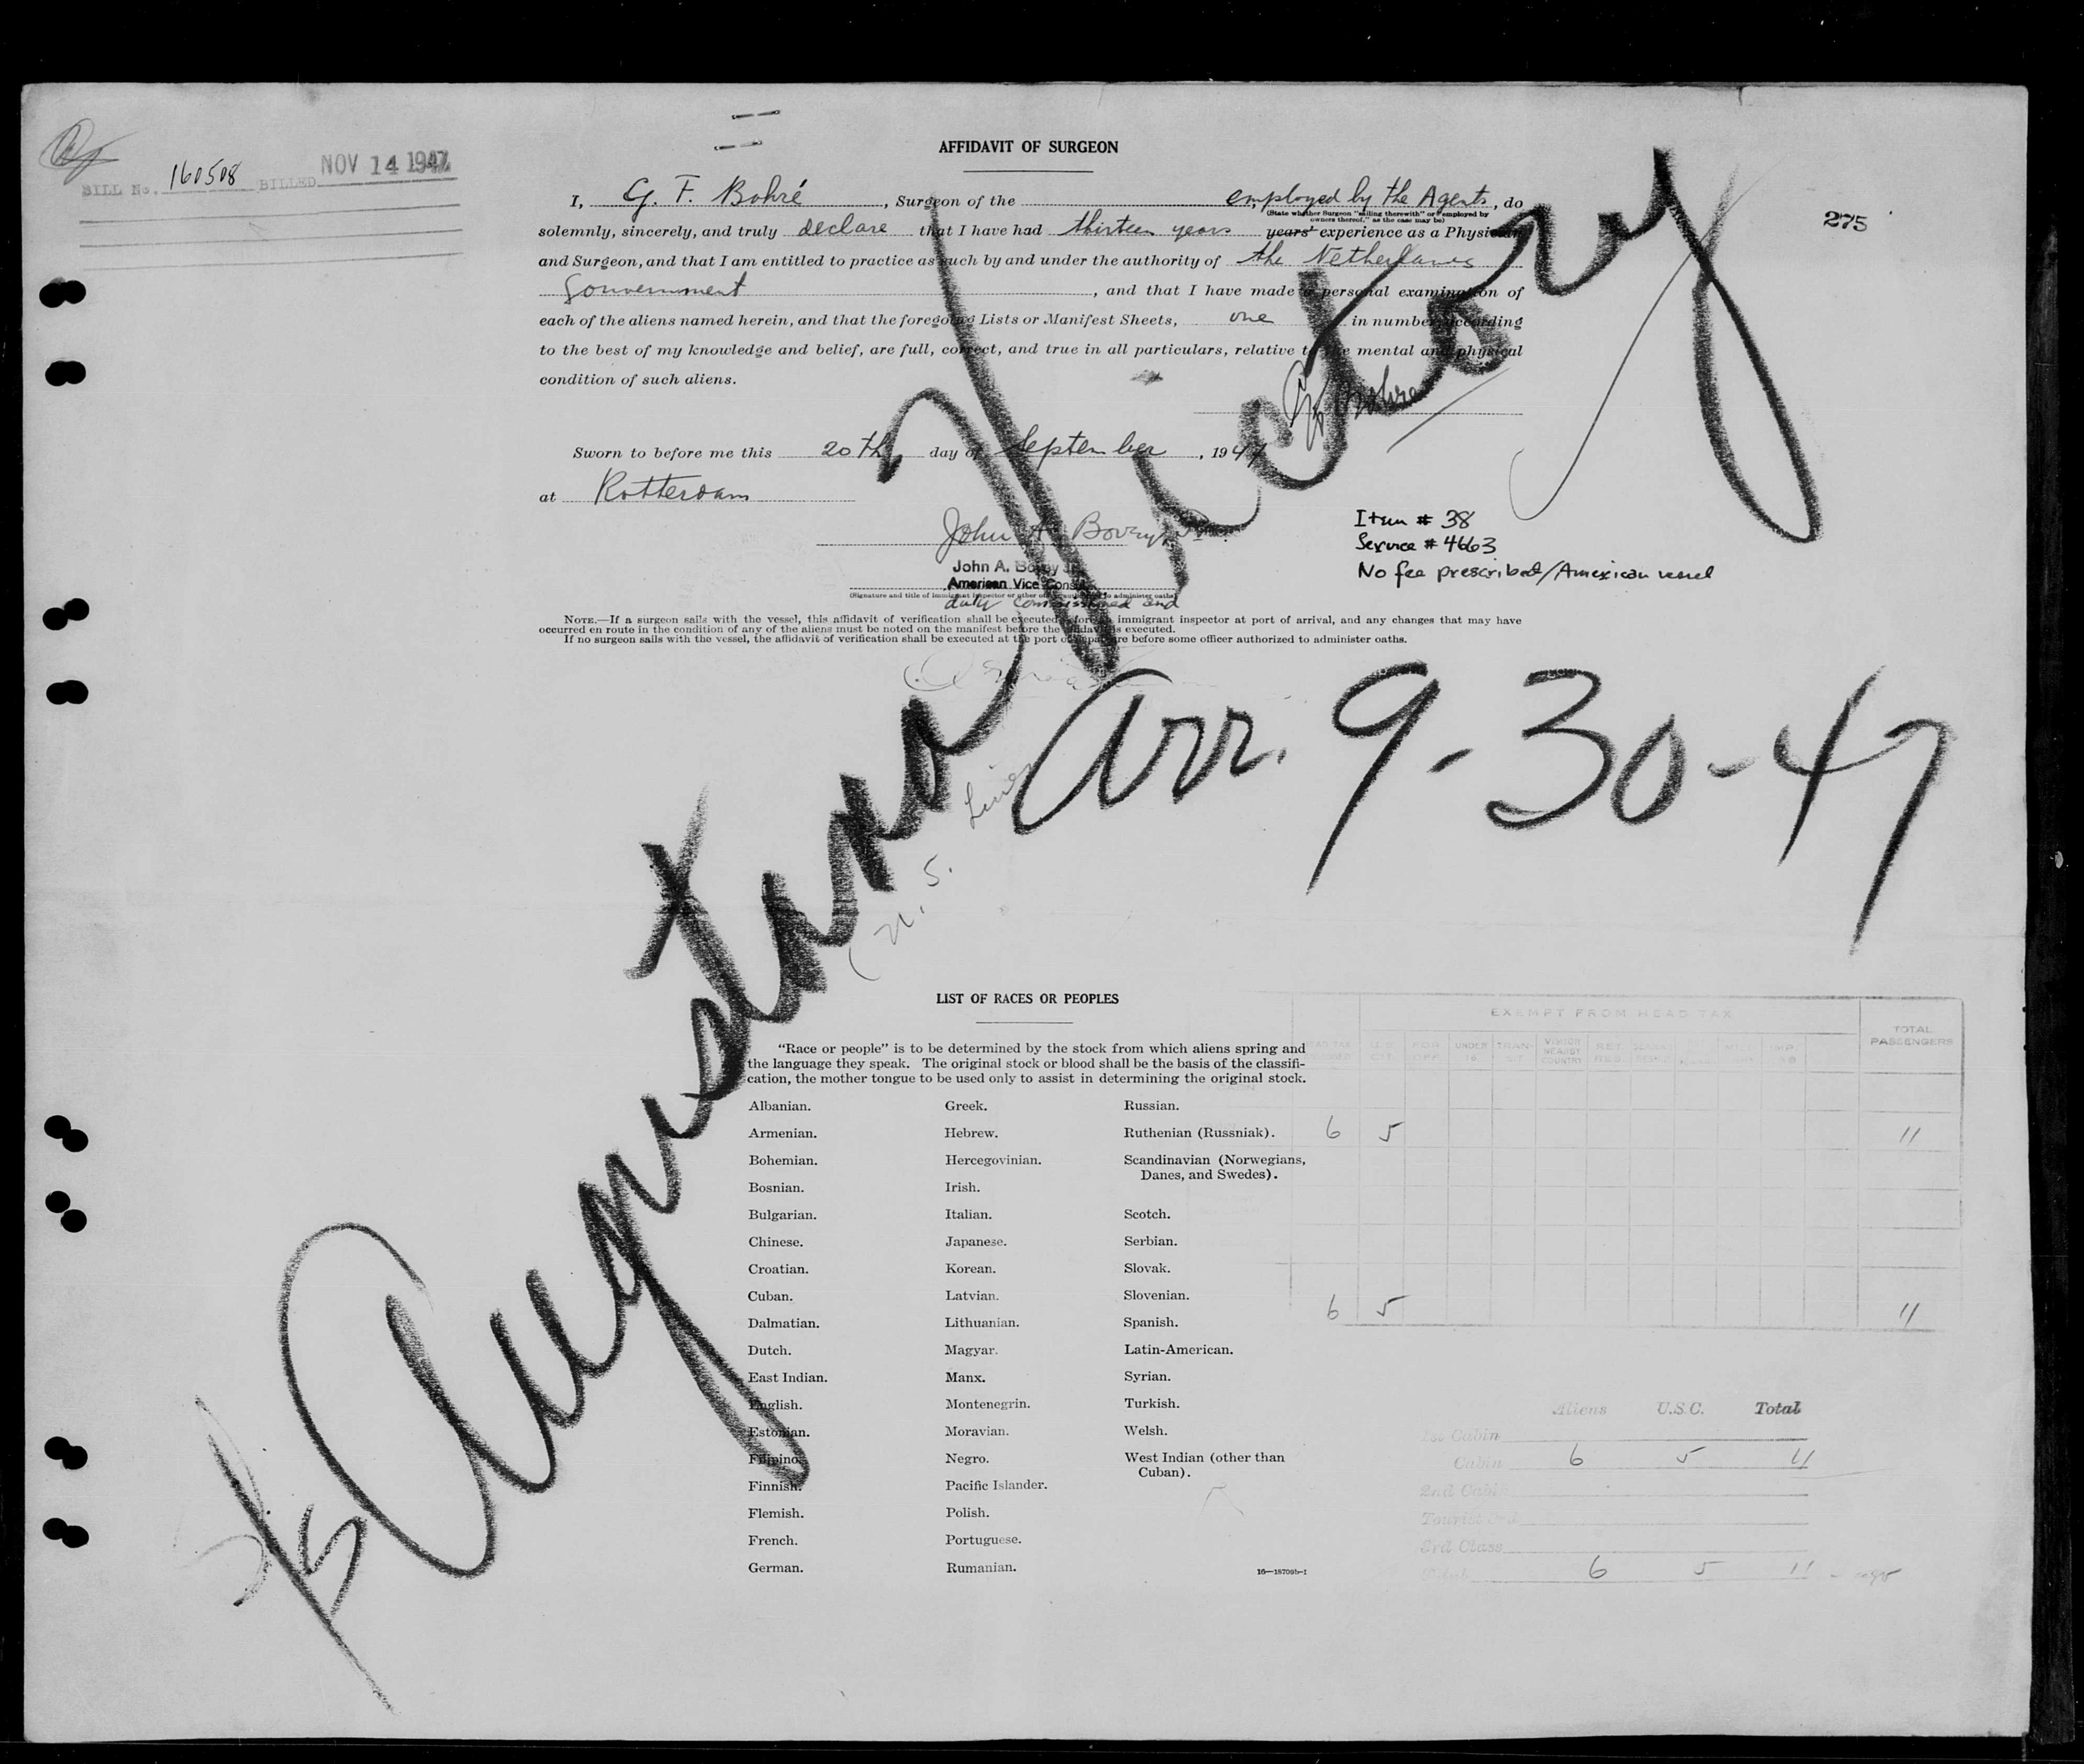 BILL No. 160508 BILLED NOV 14 1947
275
AFFIDAVIT OF SURGEON
I, G. F. Bohré, Surgeon of the employed by the Agents, do
(State whether Surgeon "sailing therewith" or "employed by
owners thereof," as the case may be)
solemnly, sincerely, and truly declare that I have had thirteen years years' experience as a Physician
and Surgeon, and that I am entitled to practice as such by and under the authority of the Netherlands
Gouvernment, and that I have made a personal examination of
each of the aliens named herein, and that the foregoing Lists or Manifest Sheets, one in number, according
to the best of my knowledge and belief, are full, correct, and true in all particulars, relative to the mental and physical
condition of such aliens.
G F Bohré
Sworn to before me this 20th day of September, 1947
at Rotterdam
John A. Bovey Jr.
John A. Bovey Jr.
American Vice Consul
(Signature and title of immigrant inspector or other officer authorized to administer oaths)
duly commissioned and
Item # 38
Service # 4663
No fee prescribed/American vessel
NOTE.—If a surgeon sails with the vessel, this affidavit of verification shall be executed before an immigrant inspector at port of arrival, and any changes that may have
occurred en route in the condition of any of the aliens must be noted on the manifest before the affidavit is executed.
If no surgeon sails with the vessel, the affidavit of verification shall be executed at the port of departure before some officer authorized to administer oaths.
S/S Augustana Victory
(U.S. Lines
Arr. 9-30-47
LIST OF RACES OR PEOPLES
"Race or people" is to be determined by the stock from which aliens spring and
the language they speak. The original stock or blood shall be the basis of the classifi-
cation, the mother tongue to be used only to assist in determining the original stock.
Albanian.
Armenian.
Bohemian.
Bosnian.
Bulgarian.
Chinese.
Croatian.
Cuban.
Dalmatian.
Dutch.
East Indian.
English.
Estonian.
Filipino.
Finnish.
Flemish.
French.
German.
Greek.
Hebrew.
Hercegovinian.
Irish.
Italian.
Japanese.
Korean.
Latvian.
Lithuanian.
Magyar.
Manx.
Montenegrin.
Moravian.
Negro.
Pacific Islander.
Polish.
Portuguese.
Rumanian.
Russian.
Ruthenian (Russniak).
Scandinavian (Norwegians,
Danes, and Swedes).
Scotch.
Serbian.
Slovak.
Slovenian.
Spanish.
Latin-American.
Syrian.
Turkish.
Welsh.
West Indian (other than
Cuban).
16—18709b-1
EXEMPT FROM HEAD TAX
HEAD TAX U.S. CIT. FOR OFF. UNDER 16 TRANSIT VISITOR NEARBY COUNTRY RET. RES. TOTAL PASSENGERS
6 5 11
6 5 11
Aliens U.S.C. Total
1st Cabin
Cabin 6 5 11
2nd Cabin
Tourist 3rd
3rd Class
Total 6 5 11